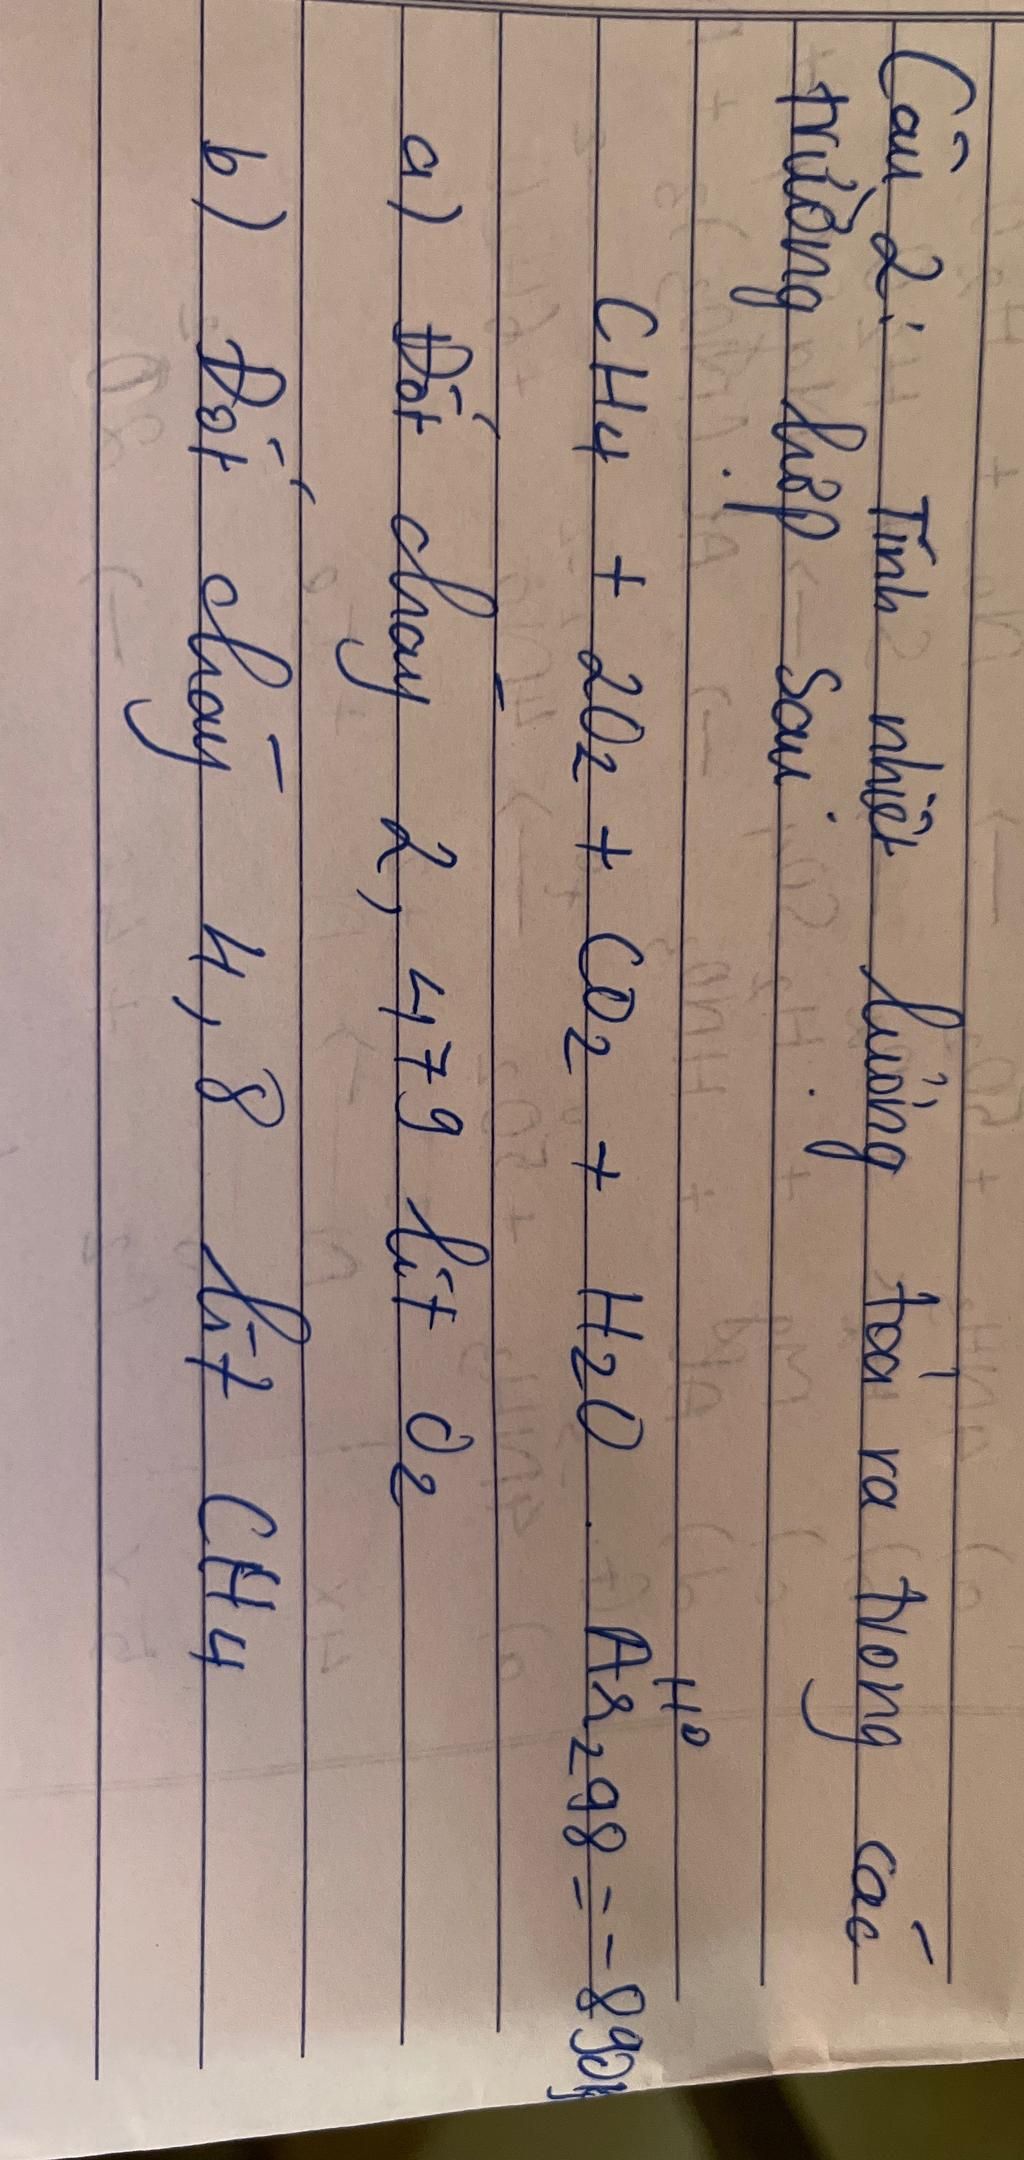 Câu 2: Tính nhiệt lượng toả ra trong các
trường hợp sau
CH4 + 2O2 + CO2 + H2O Ar298 = -890
H°
a) Đốt cháy 2,479 lít O2
b) Đốt cháy 4,8 lít CH4